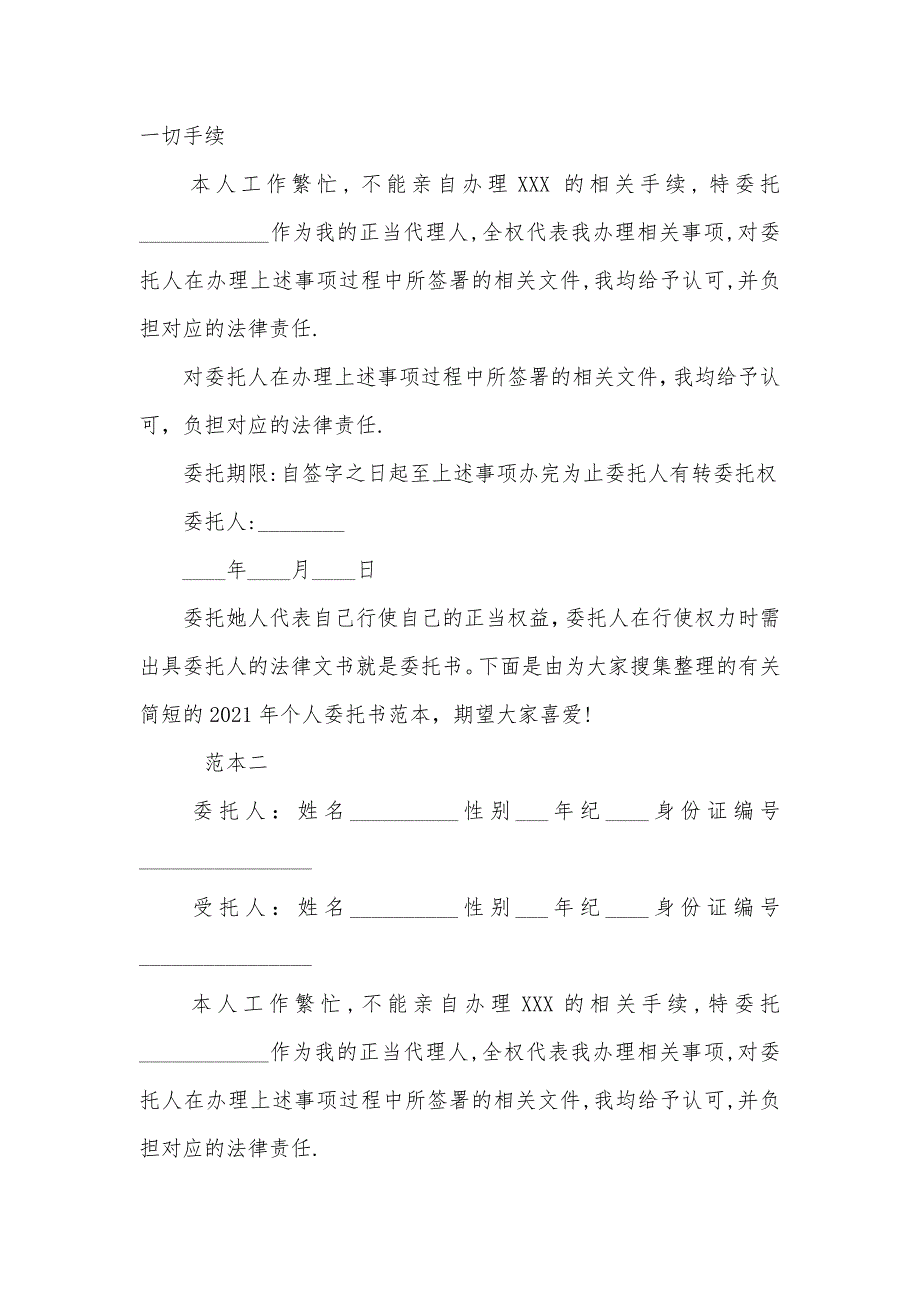 一切手续
本人工作繁忙,不能亲自办理XXX的相关手续,特委托
____________作为我的正当代理人,全权代表我办理相关事项,对委
托人在办理上述事项过程中所签署的相关文件,我均给予认可,并负
担对应的法律责任.
对委托人在办理上述事项过程中所签署的相关文件，我均给予认
可，负担对应的法律责任.
委托期限:自签字之日起至上述事项办完为止委托人有转委托权
委托人:________
____年____月____日
委托她人代表自己行使自己的正当权益，委托人在行使权力时需
出具委托人的法律文书就是委托书。下面是由为大家搜集整理的有关
简短的2021年个人委托书范本，期望大家喜爱!
范本二
委托人：姓名__________性别___年纪____身份证编号
________________
受托人：姓名__________性别___年纪____身份证编号
________________
本人工作繁忙,不能亲自办理XXX的相关手续,特委托
____________作为我的正当代理人,全权代表我办理相关事项,对委
托人在办理上述事项过程中所签署的相关文件,我均给予认可,并负
担对应的法律责任.